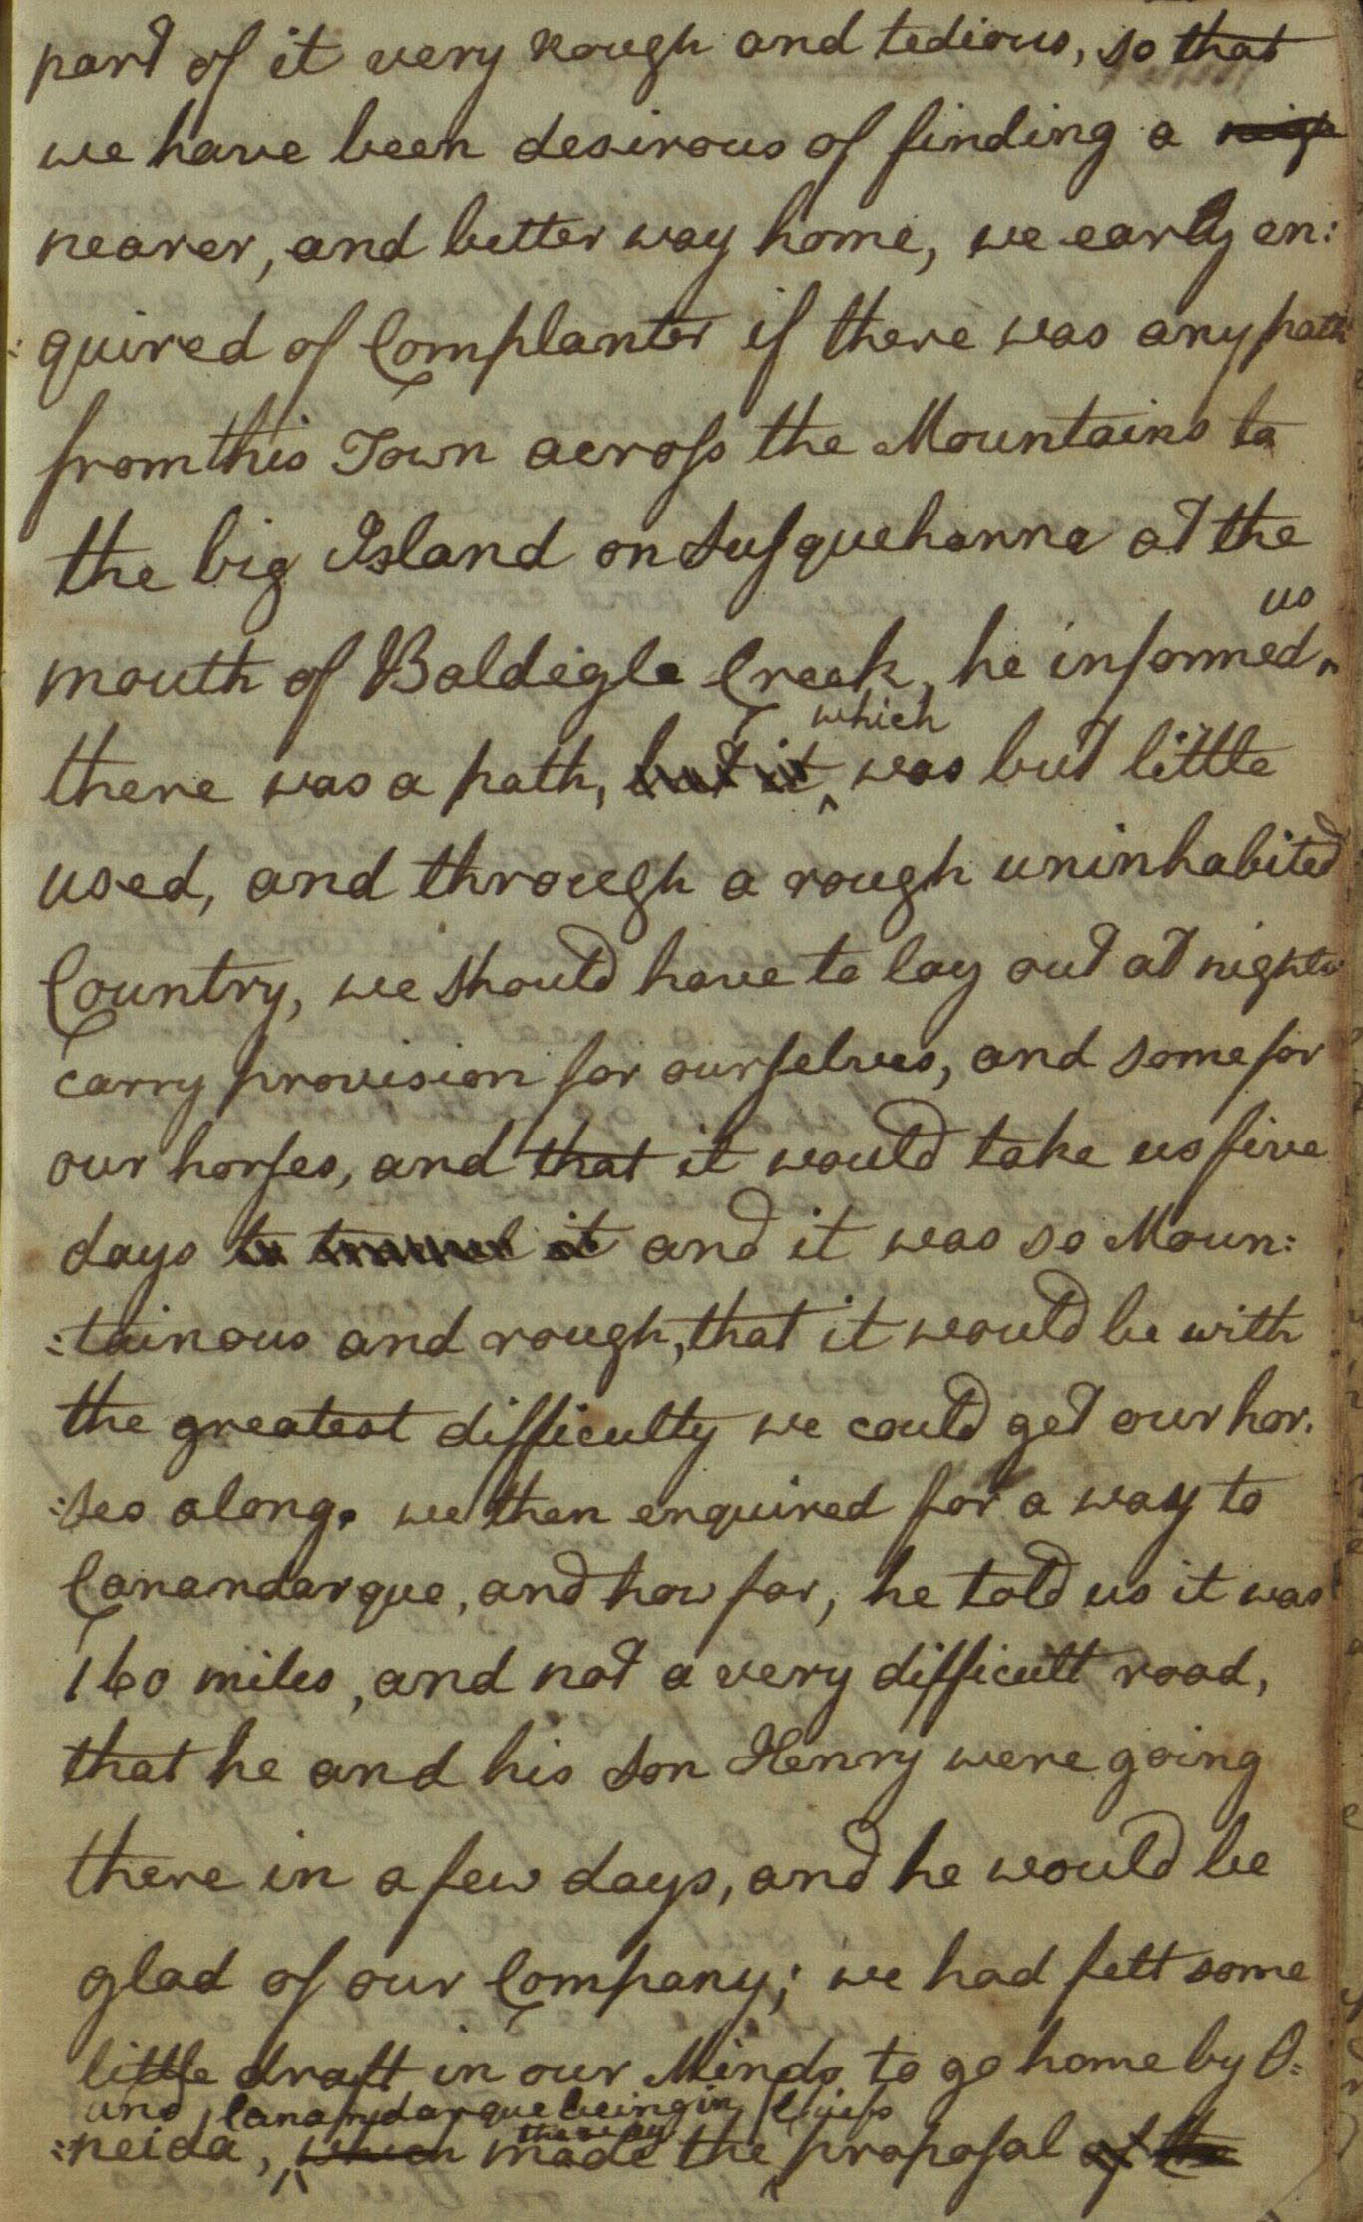 part of it very rough and tedious, so that
we have been desirous of finding a nigh
nearer, and better way home, we early en:
:quired of Cornplanter if there was any path
from this Town across the Mountains to
the big Island on Susquehanna at the
mouth of Baldigle Creek, he informed us
there was a path, but it which was but little
used, and through a rough uninhabited
Country, we should have to lay out at nights
carry provision for ourselves, and some for
our horses, and that it would take us five
days to travel it and it was so Moun:
:tainous and rough, that it would be with
the greatest difficulty we could get our hor.
:ses along. we then enquired for a way to
Canandarque, and how far, he told us it was
160 miles, and not a very difficult road,
that he and his son Henry were going
there in a few days, and he would be
glad of our Company; we had felt some
little draft in our Minds to go home by O:
and Canandarque being in the way Chiefs
:neida, which made the proposal of the